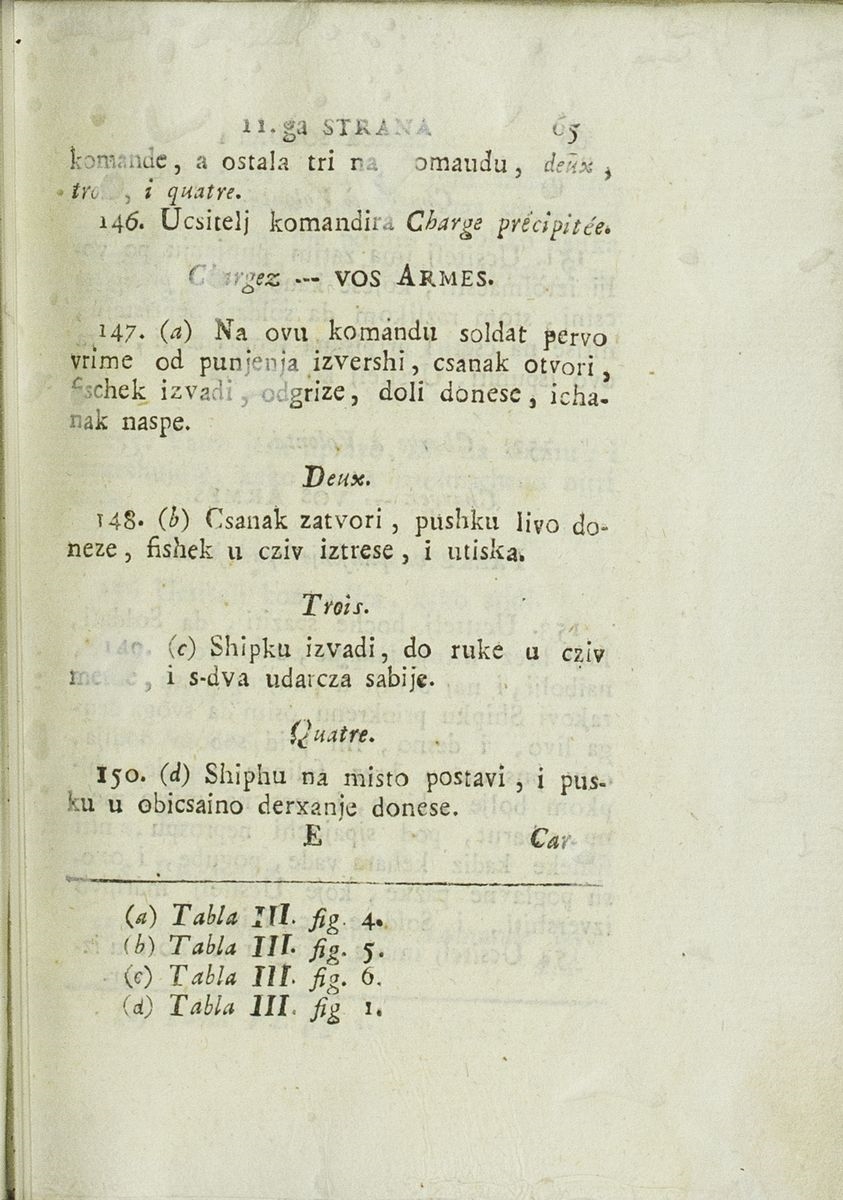 11.ga STRANA 65
komande, a ostala tri na omaudu, deux,
i quatre.
146. Ucsitelj komandira Charge précipitée.
Chargez --- VOS ARMES.
147. (a) Na ovu komandu soldat pervo
vrime od punjenja izvershi, csanak otvori,
fischek izvadi, odgrize, doli donese, icha-
nak naspe.
Deux.
148. (b) Csanak zatvori, pushku livo do-
neze, fishek u cziv iztrese, i utiska.
Trois.
149. (c) Shipku izvadi, do ruke u cziv
metne, i s-dva udarcza sabije.
Quatre.
150. (d) Shiphu na misto postavi, i pus-
ku u obicsaino derxanje donese.
E Car-
(a) Tabla III. fig. 4.
(b) Tabla III. fig. 5.
(c) Tabla III. fig. 6.
(d) Tabla III. fig 1.